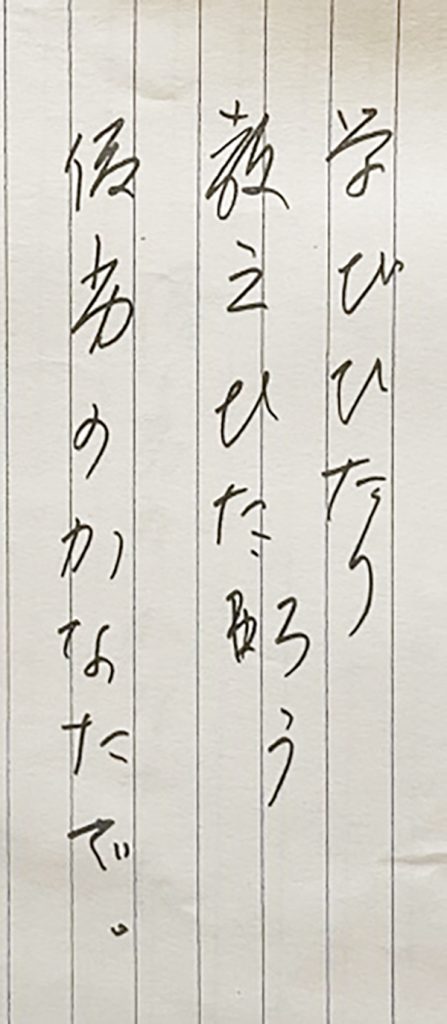 学びひたり
教えひたろう
優劣のかなたで。